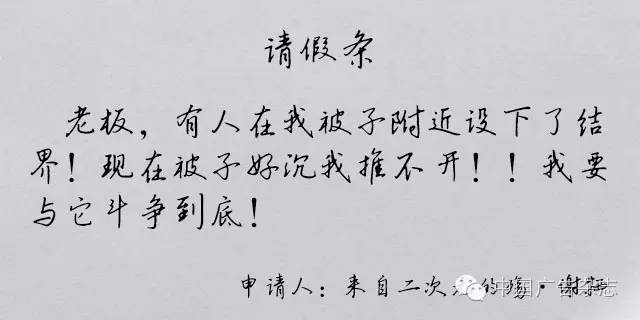 请假条
老板，有人在我被子附近设下了结
界！现在被子好沉我推不开！！我要
与它斗争到底！
申请人：来自二次元的·谢
中国广告杂志